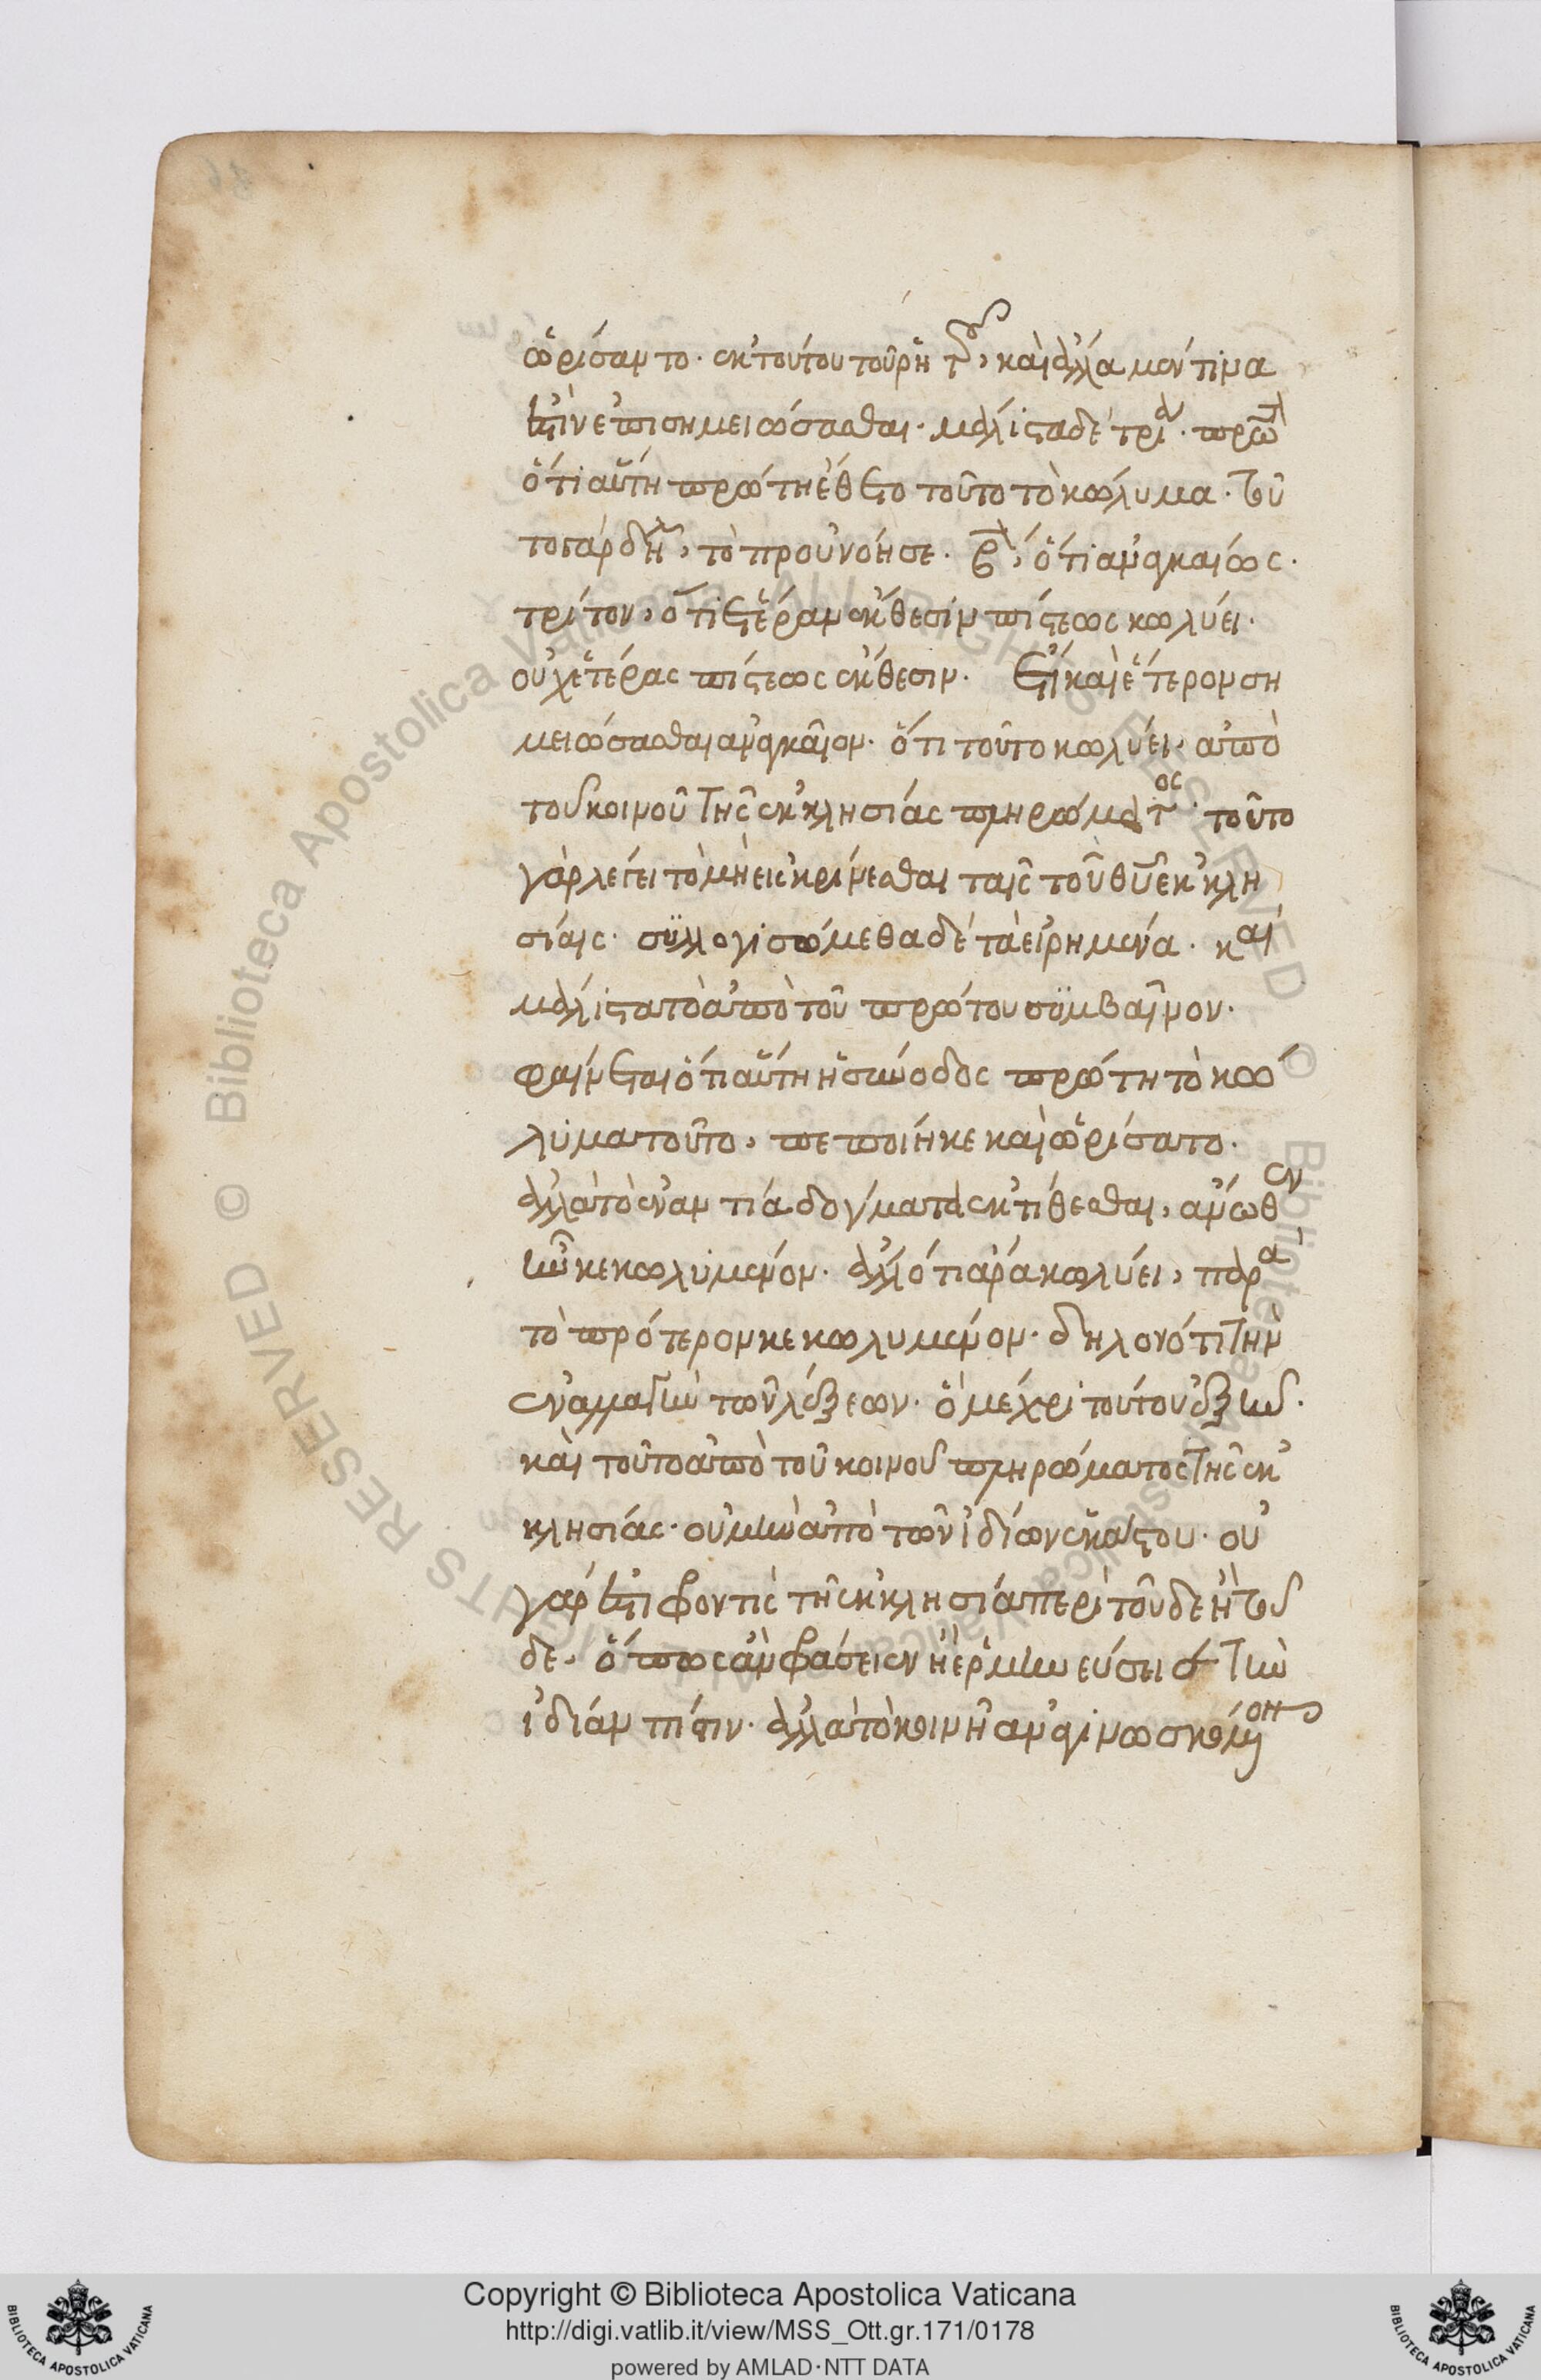 ὡρίσαντο· ἐκ τούτου τοῦ ῥητοῦ, καὶ ἄλλα μέν τινα
ἐστὶν ἐπισημειώσασθαι· μάλιστα δὲ τρία· πρῶτον
ὅτι αὕτη πρώτη ἔθετο τοῦτο τὸ κώλυμα· τοῦ
το γὰρ δηλοῖ, τὸ προὐνόησε· βον, ὅτι ἀναγκαίως·
τρίτον, ὅτι ἑτέραν ἔκθεσιν πίστεως κωλύει·
οὐχ ἑτέρας πίστεως ἔκθεσιν· ἔτι καὶ ἕτερον ση
μειώσασθαι ἀναγκαῖον· ὅτι τοῦτο κωλύει· ἀπὸ
τοῦ κοινοῦ τῆς ἐκκλησίας πληρώματος· τοῦτο
γὰρ λέγει τὸ μὴ εἰσκρίνεσθαι ταῖς τοῦ θυ ἐκκλη
σίαις· συλλογισώμεθα δὲ τὰ εἰρημένα· καὶ
μάλιστα τὸ ἀπὸ τοῦ πρώτου συμβαῖνον·
φαίνεται ὅτι αὕτη ἡ σύνοδος πρώτη τὸ κώ
λυμα τοῦτο, πεποίηκε καὶ ὡρίσατο·
ἀλλὰ τὸ ἐναντία δόγματα ἐκτίθεσθαι, ἄνωθεν
ἦν κεκωλυμένον· ἄλλό τι ἄρα κωλύει, παρὰ
τὸ πρότερον κεκωλυμένον· δηλονότι τὴν
ἐναλλαγὴν τῶν λέξεων· ὃ μέχρι τούτου ἐξῆν·
καὶ τοῦτο ἀπὸ τοῦ κοινοῦ πληρώματος τῆς ἐκ
κλησίας· οὐ μὴν ἀπὸ τῶν ἰδίων ἑκάστου· οὐ
γάρ ἐστι φροντὶς τῆ ἐκκλησία περὶ τοῦδε ἢ τοῦ
δε· ὅπως ἂν φράσειεν ἢ ἑρμηνεύσειε τὴν
ἰδίαν πίστιν· ἀλλὰ τὸ κοινῆ ἀναγινωσκόμενον